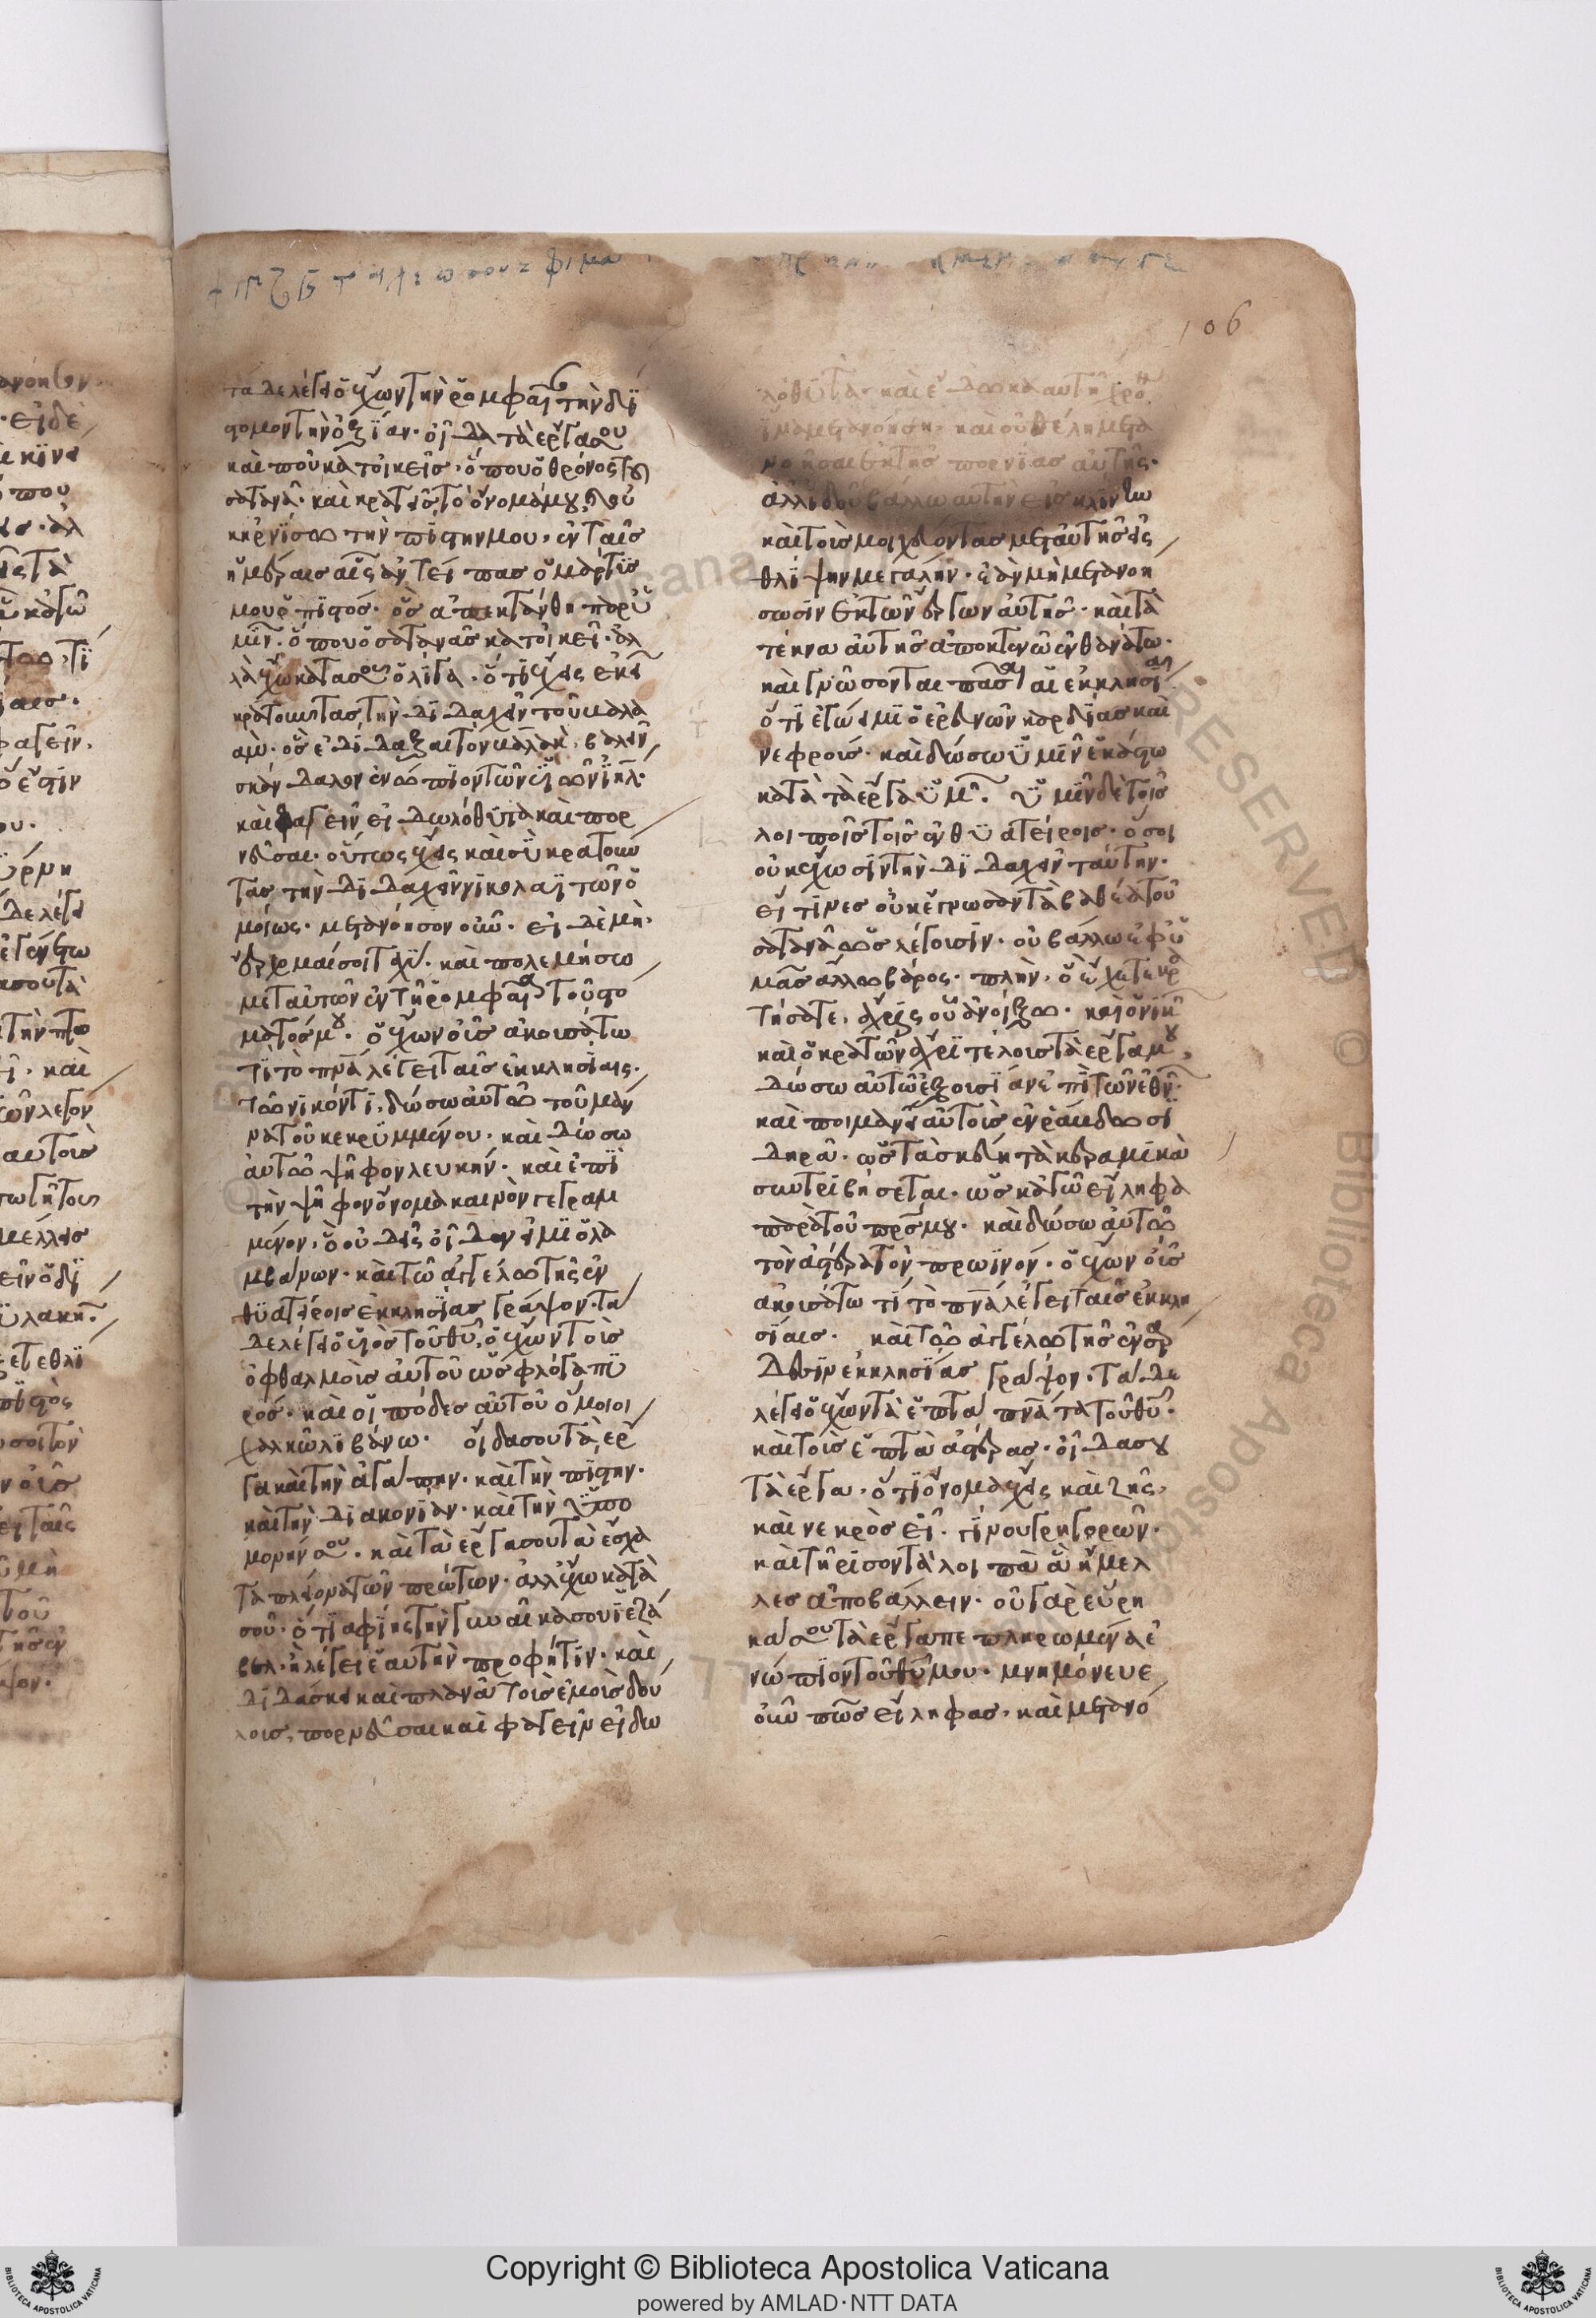 106
τάδε λέγει ὁ ἔχων τὴν ῥομφαί την δι
στομον τὴν ὀξῖαν· οἶδα τὰ ἔργα σου
καὶ ποῦ κατοικεῖς, ὅπου ὁ θρόνος τοῦ
σατανᾶ· καὶ κρατεῖς τὸ ὄνομά μου καὶ οὐ
κ ἠρνίσω τὴν πίστιν μου, ἐν ταῖς
ἡμέραις αἷς ἀντείπας ὁ μάρτϊς
μου ὁ πιστός· ὃς ἀπεκτάνθη παρ ὑ
μῖν· ὅπου ὁ σατανᾶς κατοικεῖ· ἀλ
λὰ ἔχω κατὰ σοῦ ὀλίγα· ὅτι ἔχεις ἐκεῖ
κρατοῦντας τὴν διδαχὴν τοῦ βαλα
αμ· ὃς ἐδίδαξαι τὸν βαλὰκ, βαλεῖν
σκάνδαλον ἐνώπιον τῶν υἱῶν ἰηλ·
καὶ φαγεῖν εἰδωλόθυτα καὶ πορ
νεῦσαι· οὕτως ἔχεις καὶ σὺ κρατοῦν
τας τὴν διδαχὴν νικολαϊτῶν ὁ
μοίως· μετανόησον οὖν· εἰ δὲ μὴ·
ἔρχομαί σοι ταχύ· καὶ πολεμήσω
μετ αὐτῶν ἐν τῇ ῥομφαίᾳ τοῦ στό
ματός μου· ὁ ἔχων οὖς ἀκουσάτω
τί τὸ πνα λέγει ταῖς ἐκκλησίαις·
τῶ νικόντι, δώσω αὐτῶ τοῦ μάν
να τοῦ κεκρυμμένου· καὶ δώσω
αὐτῶ ψῆφον λευκήν· καὶ ἐπὶ
τὴν ψῆφον ὄνομα καινὸν γεγραμ
μένον, ὃ οὐδεὶς οἶδεν εἰ μὴ ὁ λα
μβάνων· καὶ τῶ ἀγγέλω τῆς ἐν
θυατείροις ἐκκλησίας γράψον· τά
δε λέγει ὁ υἱὸς τοῦ θυ, ὁ ἔχων τοὺς
ὀφθαλμοὺς αὐτοῦ ὡς φλόγα πυ
ρός· καὶ οἱ πόδες αὐτοῦ ὅμοιοι
χαλκωλιβάνω· οἶδα σου τὰ ἔρ
γα καὶ τὴν ἀγάπην· καὶ τὴν πίστιν·
καὶ τὴν διακονίαν· καὶ τὴν ὑπο
μονήν σου· καὶ τὰ ἔργα σου τὰ ἔσχα
τα πλείονα τῶν πρώτων· ἀλλ ἔχω κατὰ
σοῦ· ὅτι ἀφίης τὴν γυναῖκα σου ϊεζά
βελ· ἣ λέγει ἑαυτὴν προφῆτιν· καὶ
διδάσκει καὶ πλανᾶ τοὺς ἐμοὺς δού
λοις, πορνεῦσαι καὶ φαγεῖν εἰδω
λόθυτα· καὶ ἔδωκα αὐτῇ χρό
ἵνα μετανόησῃ· καὶ οὐ θέλη μετα
νοῆσαι ἐκ τῆς πορνίας αὐτῆς·
ἀλλ ἰδοὺ βάλλω αὐτὴν εἰς κλίνην
καὶ τοὺς μοιχεύοντας μετ αὐτῆς εἰς
θλίψην μεγάλην· ἐὰν μὴ μετανοή
σωσιν ἐκ τῶν ἔργων αὐτῆς· καὶ τὰ
τέκνα αὐτῆς ἀποκτενῶ ἐν θανάτω·
καὶ γνώσονται πᾶσαι αἱ ἐκκλησίαι
ὅτι ἐγώ εἰμι ὁ ἐρευνῶν καρδίας καὶ
νεφρούς· καὶ δώσω ὑμῖν ἑκάστω
κατὰ τὰ ἔργα ὑμῶν· ὑμῖν δὲ τοῖς
λοιποῖς τοῖς ἐν θυατείροις· ὅσοι
οὐκ ἔχωσιν τὴν διδαχὴν ταύτην·
εἵτινες οὐκ ἔγνωσαν τὰ βαθέα τοῦ
σατανᾶ ὡς λέγουσιν· οὐ βάλλω ἐφ ὑ
μᾶς ἄλλω βάρος· πλὴν, ὃ ἔχετε κρα
τήσατε, ἄχρις οὗ ἀνοίξω· καὶ ὁ νικῶν
καὶ ὁ κρατῶν ἄχρι τέλους τὰ ἔργα μου,
δώσω αὐτῶ ἐξουσίαν ἐπὶ τῶν ἐθν·
καὶ ποιμανεῖ αὐτοὺς ἐν ῥάβδω σι
δηρᾶ· ὡς τὰ σκεύη τὰ κεραμικὰ
συντριβήσεται· ὡς κἀγὼ εἴληφα
παρὰ τοῦ πρς μου· καὶ δώσω αὐτῶ
τὸν ἀστέρα τὸν πρωϊνόν· ὁ ἔχων οὖς
ἀκουσάτω τί τὸ πνα λέγει ταῖς ἐκκλη
σίαις· καὶ τῶ ἀγγέλω τῆς ἐν σαρ
δεσιν ἐκκλησίας γράψον· τάδε
λέγει ὁ ἔχων τὰ ἑπτὰ πνατα τοῦ θυ·
καὶ τοὺς ἑπτὰ ἀστέρας· οἶδα σου
τὰ ἔργα· ὅτι ὄνομα ἔχεις καὶ ζῆς,
καὶ νεκρὸς εἶ· γίνου γρηγορῶν·
καὶ τήρισον τὰ λοιπὰ ἃ ἤμελ
λες ἀποβάλλειν· οὐ γὰρ εὕρη
κά σου τὰ ἔργα πεπληρωμένα ἐ
νώπιον τοῦ θυ μου· μνημόνευε
οὖν πῶς εἴληφας· καὶ μετανό